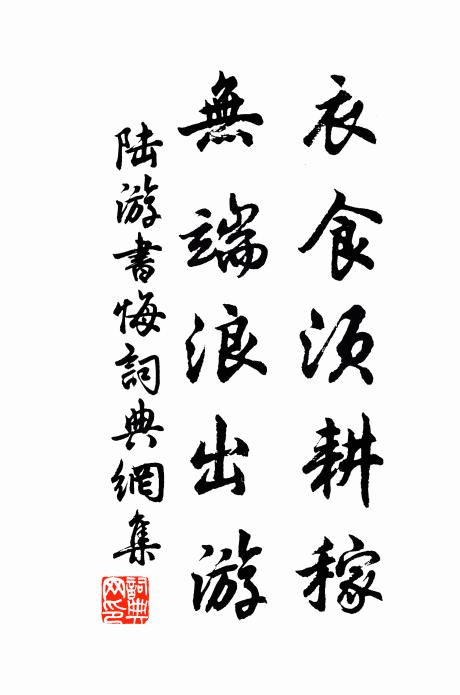 衣食須耕稼
無端浪出游
陸游書悔詞典網集
詞典網印